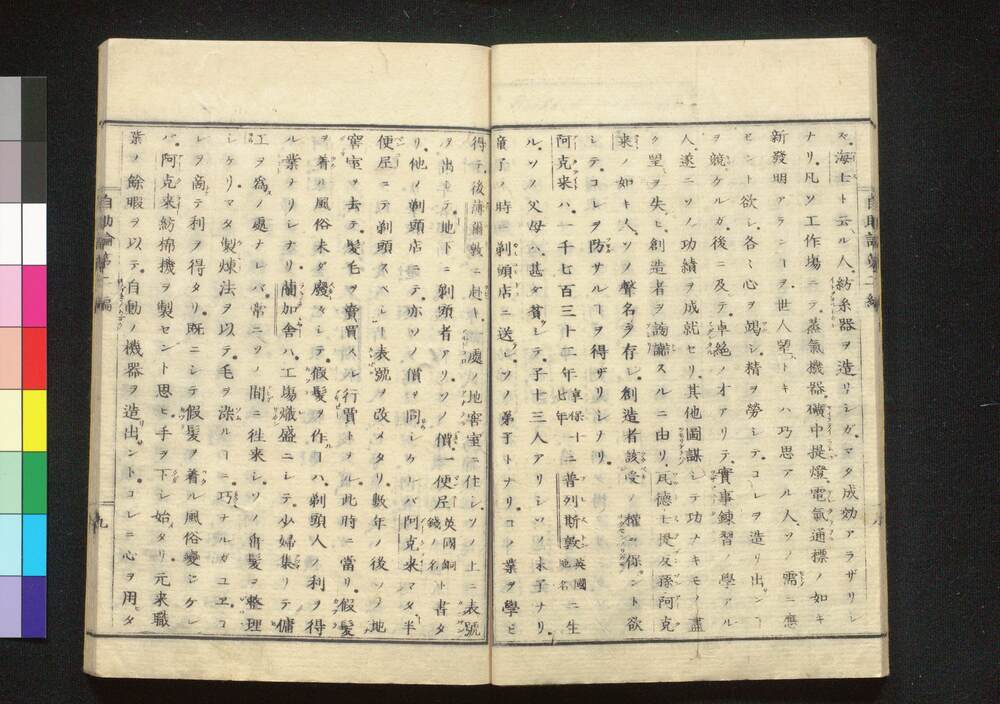 ス海士ト云ル人紡糸器ヲ造リシガマタ成効アラザリシ
ナリ凡ソ工作場ニテ蒸氣機器礦中提燈電氣通標ノ如キ
新發明アランヿヲ世人望トキハ巧思アル人ソノ需ニ應
センヿヲ欲シ各々心ヲ竭シ精ヲ勞シテコレヲ造リ出シ
ヲ競ケルガ後ニ及テ卓絶ノオアリテ實事錬習ノ學アル
人遂ニソノ功績ヲ成就セリ其他圖謀シテ功ナキモノ盡
ク望ヲ失ヒ創造者ヲ謗讟スルニ由リ瓦德士及孫阿克
来ノ如キ人ソノ聲名ヲ存シ創造者該受ノ權ヲ保ント欲
シテコレヲ防サルヿヲ得ザリシナリ
阿克来ハ一千七百三十二年享保十二七年普列斯敦英國ノ地名ニ生
ルソノ父母ハ甚タ貧クシテ子十三人アリシソノ末子ナリ
童子ノ時ニ剃頭店ニ送レソノ弟子トナリコノ業ヲ學ヒ
得テ後薄爾敦ニ赴キ一處ノ地窖室ニ住シソノ上ニ表號
ヲ出シテ地下ニ剃頭者アリソノ價一便尼英國銅錢ノ名ト書タ
リ他ノ剃頭店ニテ亦ソノ價ヲ同シケレバ阿克来マタ半
便尼ニテ剃頭スベシト表號ヲ改メタリ數年ノ後ソノ地
窖室ヲ去テ髮毛ヲ賣買スル行賈トナル此時ニ當リ假髮
ヲ着ル風俗未ダ廢レズシテ假髮ヲ作ルハ剃頭人ノ利ヲ得
ル業ナリシナリ蘭加舍ハ工塲熾盛ニシテ少婦集リテ傭
工ヲ爲スノ處ナレバ常ニソノ間ニ徃来シソノ角髮ヲ整理
シケリマタ製煉法ヲ以テ毛ヲ染ルヿニ巧ナルガユヱコ
レヲ商テ利ヲ得タリ既ニシテ假髮ヲ着ル風俗變シケレ
バ阿克来紡棉機ヲ製セント思ヒ手ヲ下シ始タリ元来職
業ノ餘暇ヲ以テ自動ノ機器ヲ造出サントコレニ心ヲ用タ
自助論第二編
九